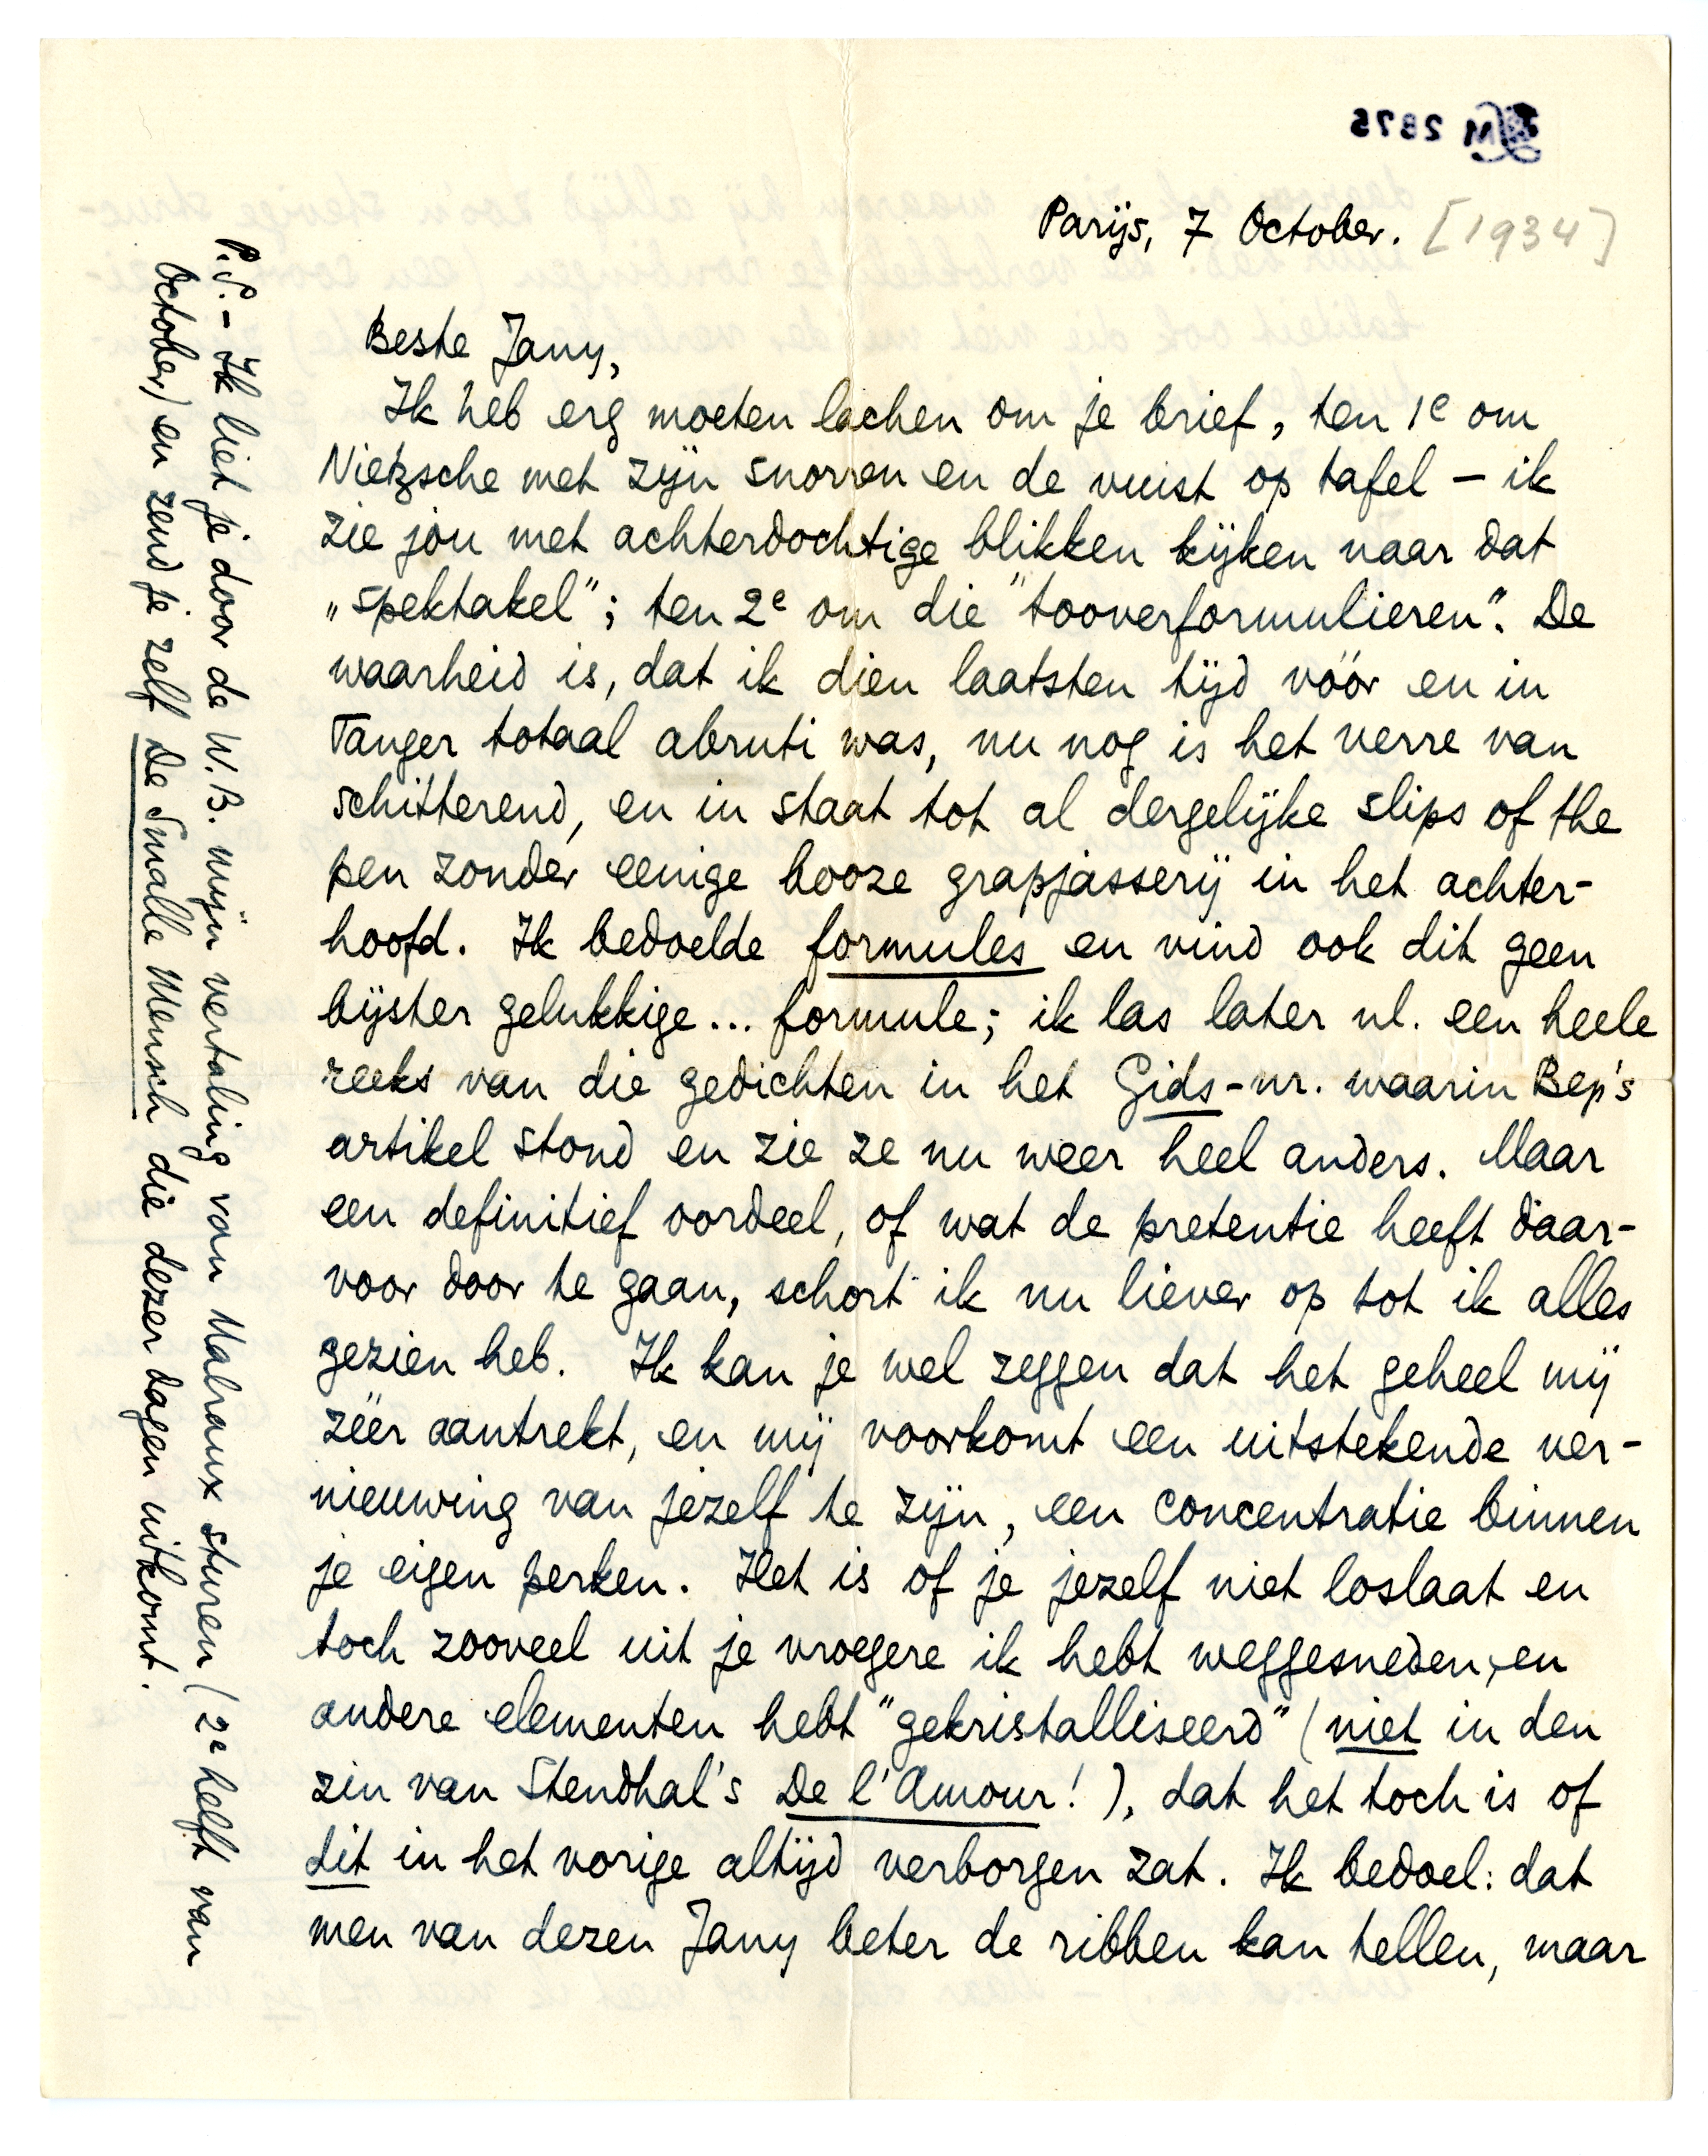 LM 2875
Parijs, 7 October. [1934]
Beste Jany,
Ik heb erg moeten lachen om je brief, ten 1e om
Nietzsche met zijn snorren en de vuist op tafel – ik
zie jóu met achterdochtige blikken kijken naar dat
„spektakel"; ten 2e om die "tooverformulieren". De
waarheid is, dat ik dien laatsten tijd vóór en in
Tanger totaal abruti was, nu nog is het verre van
schitterend, en in staat tot al dergelijke slips of the
pen zonder eenige booze grapjasserij in het achter-
hoofd. Ik bedoelde formules en vind ook dit geen
bijster gelukkige... formule; ik las later nl. een heele
reeks van die gedichten in het Gids-nr. waarin Bep's
artikel stond en zie ze nu weer heel anders. Maar
een definitief oordeel, of wat de pretentie heeft daar-
voor door te gaan, schort ik nu liever op tot ik alles
gezien heb. Ik kan je wel zeggen dat het geheel mij
zéér aantrekt, en mij voorkomt een uitstekende ver-
nieuwing van jezelf te zijn, een concentratie binnen
je eigen perken. Het is of je jezelf niet loslaat en
toch zooveel uit je vroegere ik hebt weggesneden, en
andere elementen hebt "gekristalliseerd" (niet in den
zin van Stendhal's De l'Amour!), dat het toch is of
dit in het vorige altijd verborgen zat. Ik bedoel: dat
men van dezen Jany beter de ribben kan tellen, maar
P.S. – Ik liet je door de W.B. mijn vertaling van Malraux sturen (2e helft van
October) en zend je zelf De Smalle Mensch die dezer dagen uitkomt.